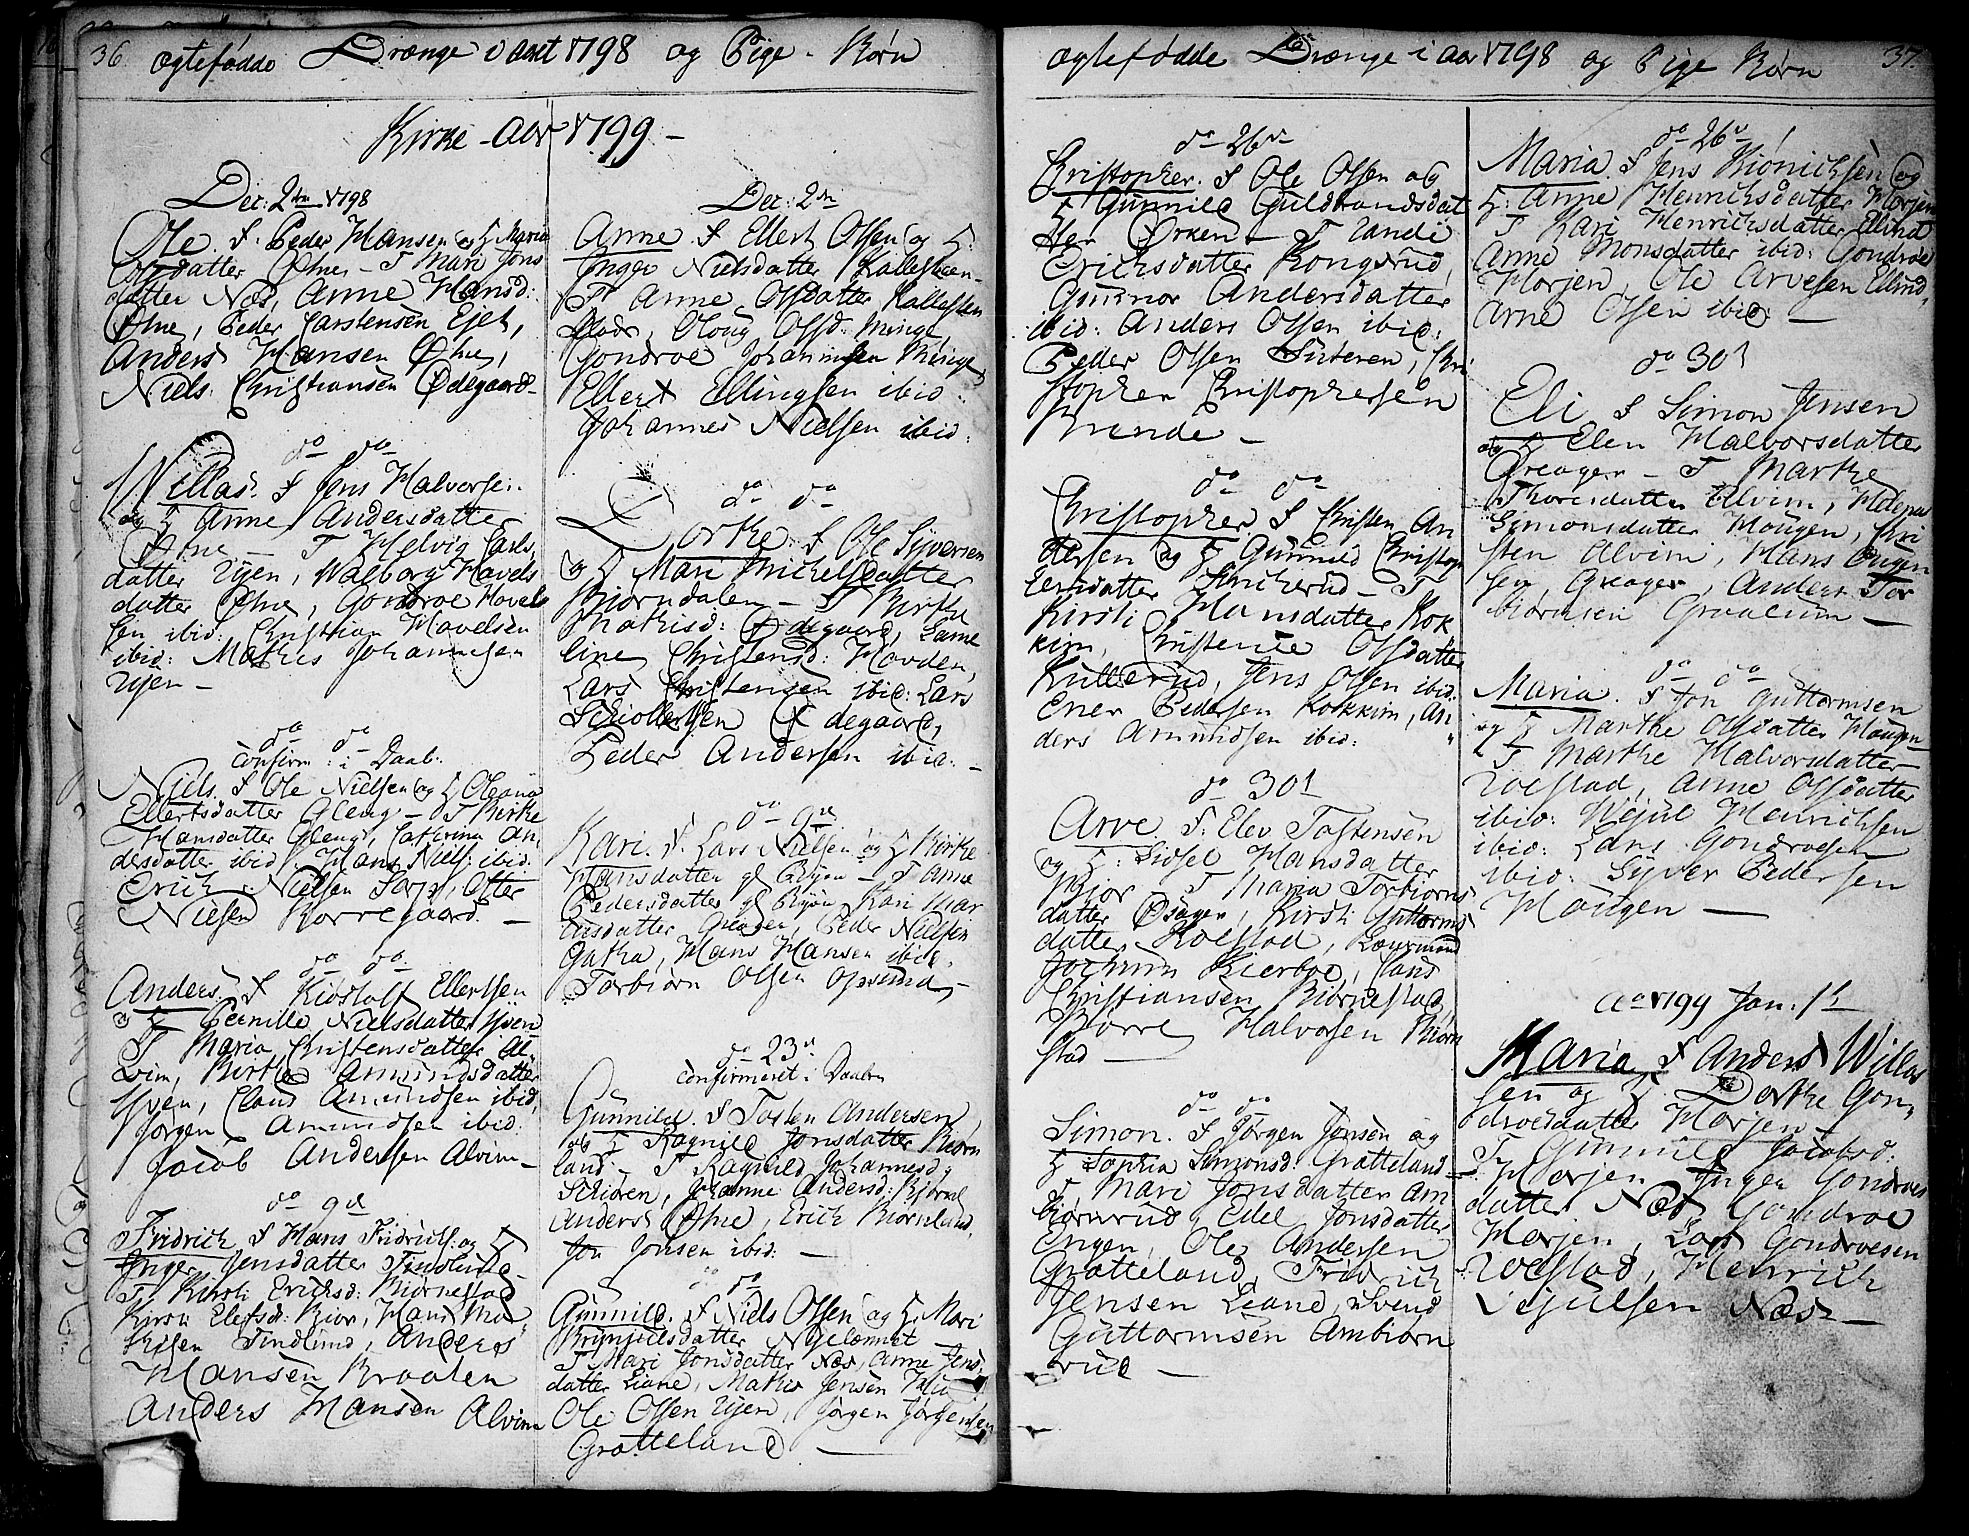 36 ægtefødde Drænge i aaret 1798 og Pige-Børn
Kirke-Aar 1799 -
Dec: 2den 1798
Ole. F. Peder Hansen og H Maria
datter Øhne - T Mari Jons
datter Næs, Anne Hansd:
Øhne, Peder Carstensen Ejet,
Anders Hansen Øhne,
Niels Christiansen Ødegaard
do do
Willas. F Jens Halvorse..
og H Anne Andersdatter
Øhne - T Helvig Carls
datter Ujen, Walborg Havels
datter Øhne, Gondroe Havels
sen ibid: Christian Havelsen
ibid: Mathis Johannesen
Ujen -
do do
confirm: i Daab:
Niels. F Ole Nielsen og H Oleana
Ellertsdatter Gleng - T Birthe
Hansdatter Gleng, Cathrina An
desdatter ibid: Hans Niels: ibid:
Erich Nielsen Sorge, Ofter
Nielsen Borregaard. -
do do
Anders. F Kiostolf Ellertsen
og H Pernille Nielsdatter Hven
T Maria Christensdatter Al-
vim, Birthe Amundsdatter
Hven, Claus Amundsen ibid,
Jørgen Amundsen ibid:
Jacob Andersen Alvim -
do 9de
Fridrich F Hans Fridrichs: og H
Inger Jensdatter Tindlund -
T Kirsti Erichsd: Biørnestad
Kirsti Elefsd: Bior, Hans Ma-
thisen Tindlund, Anders
Hansen Braaten
Anders Hansen Alvim
Dec: 2den
Anne F Ellert Olsen og H:
Inger Nielsdatter Kallesteen -
T Anne Olsdatter Kallesten
Oloug Olsd: Minge
Gondroe Johannesen Minge
Ellert Ellingsen ibid:
Johannes Nielsen ibid:
do do
Dorthe. F Ole Syversen
og H Mari Michelsdatter
Biørndalen - T Birthe
Mathisd: Ødegaard, Lame
line Christensd: Hovden,
Lars Christensen ibid: Lars
Schiollersen Ødegaard,
Peder Andersen ibid: -
do 9de
Kari. F. Lars Nielsen og H Birthe
Hansdatter gl Bryen - T Anne
Pedersdatter gl Bryen Kari Mar
thisdatter Greager, Peder Nielsen
Gatha, Hans Hansen ibid:
Torbiørn Olsen Opsund, -
do 23de
confirmeret i Daaben
Gunnild. F Tosten Andersen
og H Ragnild Jonsdatter Biørn
land - T Ragnild Johannesd:
Schiøren, Johanne Andersd: Biørnl
Anders Øhne, Erich Biørnland,
Jon Jonsen ibid: -
do do
Gunnild. F Niels Olsen og H Mari
Brynjulsdatter Nyelænnet -
T Mari Jonsdatter Næs, Anne Jens
datter Liane, Mathis Jensen
Ole Olsen Ujen, Jørgen Jørgensen
Gratteland -
ægtefødde Drænge i aar 1798 og Pige Børn 37.
do 26de
Christopher. F Ole Olsen og
H Gunnild Guldbrandsdat
ter Ørken - T Randi
Erichsdatter Kongsrud,
Gunnor Andersdatter
ibid: Anders Olsen ibid:
Peder Olsen Suteren, Chri
stopher Christophersen
Brende -
do do
Christopher F Christen An
dersen og H Gunnild Christoph
ersdatter - T
Kirsti Hansdatter Kok
kim, Christense Olsdatter
Kullerud, Jens Olsen ibid:
Ener Pedersen Kokkim, An
ders Amundsen ibid:
do 30t
Arve. F. Elev Tostensen
og H: Sidsel Hansdatter
Bjor T Maria Torbiørns
datter Øsager, Kirsti Guttorms
datter Holstad, Lourmand
Jochum Kierboe, Claus
Christiansen Biørnestad,
Børre Halvorsen Biørn
stad -
do do
Simon. F Jørgen Jensen og
H Sophia Simonsd: Gratteland -
T, Mari Jonsdatter Am
biørnrud, Edel Jonsdatter
Engen, Ole Andersen
Gratteland, Fridrich
Jensen Liane, Svend
Guttormsen Ambiørn
rud -
do 26de
Maria. F Jens Biønichsen og
H: Anne Henrichsdatter Horjen
T Kari Henrichsdatter Ellind
Anne Monsdatter ibid: Gondroe
Horjen, Ole Arvesen Ellind,
Arne Olsen ibid: -
do 30t
Eli F Simon Jensen
og H Elen Halvorsdatter
Greager - T Marthe
Thoresdatter Alvim, Helena
Simonsdatter Hougen, Chri
sten Alvim, Hans
sen, Greager, Anders Tor
biørnsen Graalum -
do do
Maria. F Jon Guttormsen
og H Marthe Olsdatter Hougen
T Marthe Halvorsdatter
Rolstad, Anne Olsdatter
ibid: Wejul Henrichsen
ibid: Lars Gondroesen
ibid: Syver Pedersen
Hougen -
Ao 1799 Jan. 1te
Maria F Anders Willas
sen og H Dorthe Gon,
droesdatter Horjen -
T Gunnild Jacobsd:
Horjen Inger Gondroes
datter Næs Gondroe
Horjen, Lars Gondroesen
Rolstad, Henrich
Vejulsen Næs -